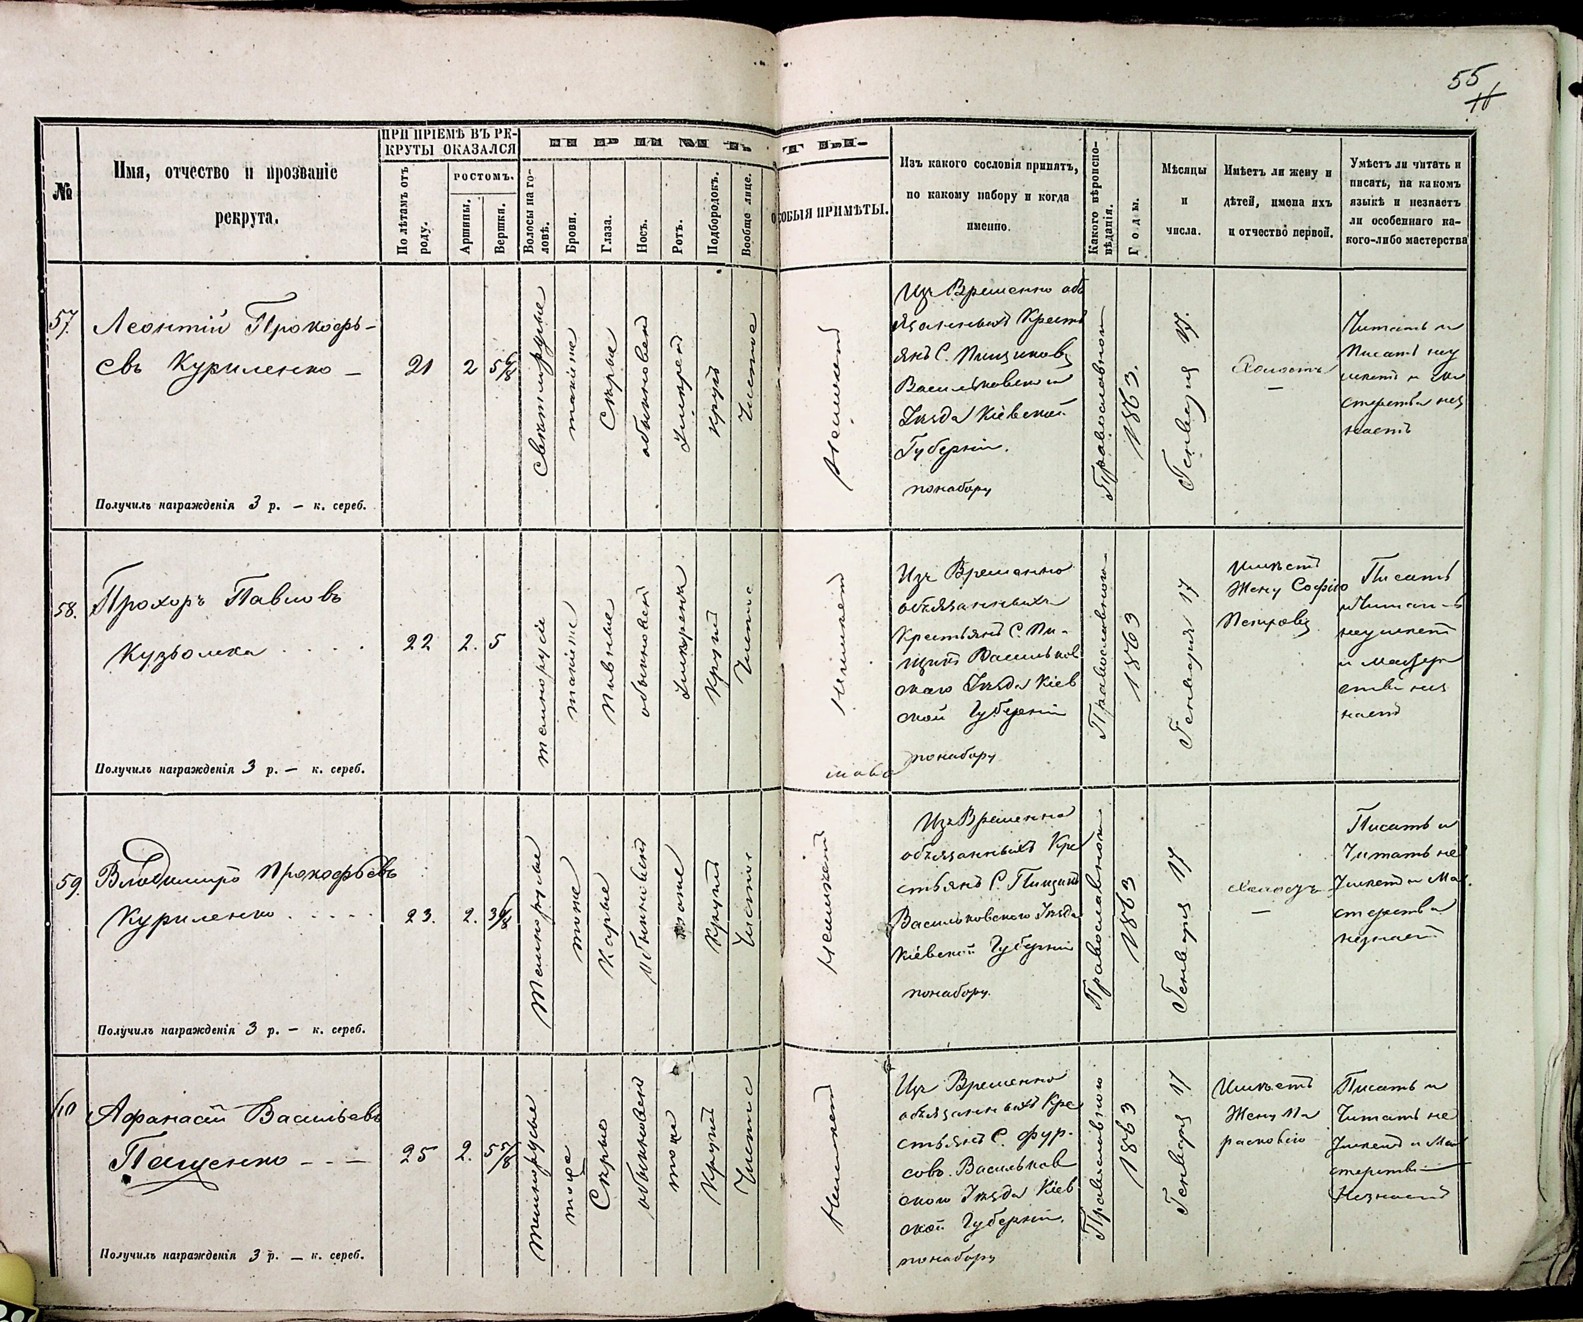 55
16
№
Имя, отчество и прозваніе
рекрута.
ПРИ ПРІЕМѢ ВЪ РЕ-
КРУТЫ ОКАЗАЛСЯ
По лѣтамъ отъ
роду.
РОСТОМЪ.
Аршины.
Вершки.
Волосы на го-
ловѣ.
Брови.
Глаза.
Носъ.
Ротъ.
Подбородокъ.
Вообще лице.
ОСОБЫЯ ПРИМѢТЫ.
Изъ какого сословія принятъ,
по какому набору и когда
именно.
Какого вѣроиспо-
вѣданія.
Годы.
Мѣсяцы
и
числа.
Имѣетъ ли жену и
дѣтей, имена ихъ
и отчество первой.
Умѣетъ ли читать и
писать, на какомъ
языкѣ и незнаетъ
ли особеннаго ка-
кого-либо мастерства
57.
Леонтій Прокофь-
евъ Куриленко —
Получилъ награжденія 3 р. — к. сереб.
21
2
свѣтлорусые
такіеже
Сѣрые
обыкновен
Умѣрен
круг
Чистое
Неимѣет
Изъ Временно обя
занныхъ Кресть
янъ С.
Васильковскаго
Уѣзда Кіевской
Губерніи.
понабору
Православнои
1863.
Генваря 17.
Холостъ
—
Читать и
Писать неу
мѣетъ и ма
стерства нез
наетъ
58.
Прохоръ Павловъ
Кузьолка
Получилъ награжденія 3 р. — к. сереб.
22
2.
5
темнорусіе
такіеже
Пивные
обыкновен
Умѣренн
Кругл
Чистое
Неимѣет
Изъ Временно
обязанныхъ
Крестьянъ С. Пи-
щики Васильков
скаго Уѣзда Кіев
ской Губерніи
понабору
Православного
1863
Генваря 17
Имѣетъ
Жену Софію
Петрову
Писать
и Читать
неумѣет
и Мастер
ства нез
наетъ
59.
Владимиръ Прокофьевъ
Куриленко
Получилъ награжденія 3 р. — к. сереб.
23.
2.
Темнорусые
тоже
Карые
Обыкновен
тоже
Кругл
Чистое
Неимѣет
Изъ Временно
обязанныхъ Кре
стьянъ С. Пищики
Васильковского Уѣзда
Кіевской Губерніи
понабору.
Православнои
1863
Генваря 17
Холостъ
—
Писать и
Читать не
Умѣет и Ма
стерства
незнает
60
Афанасій Васильевъ
Пащенко — —
Получилъ награжденія 3 р. — к. сереб.
25
2.
темнорусые
тоже
Сѣрые
обыкновен
тоже
Кругл
Чистое
Неимѣет
Изъ Временно
обязанныхъ Кре
стьянъ С. Фур-
сова. Васильков
скаго Уѣзда Кіев
ской Губерніи.
понабору
Православного
1863
Генваря 17
Имѣетъ
Жену Па
расковію
Писать и
Читать не
Умѣет и Ма
стерства
Незнаетъ